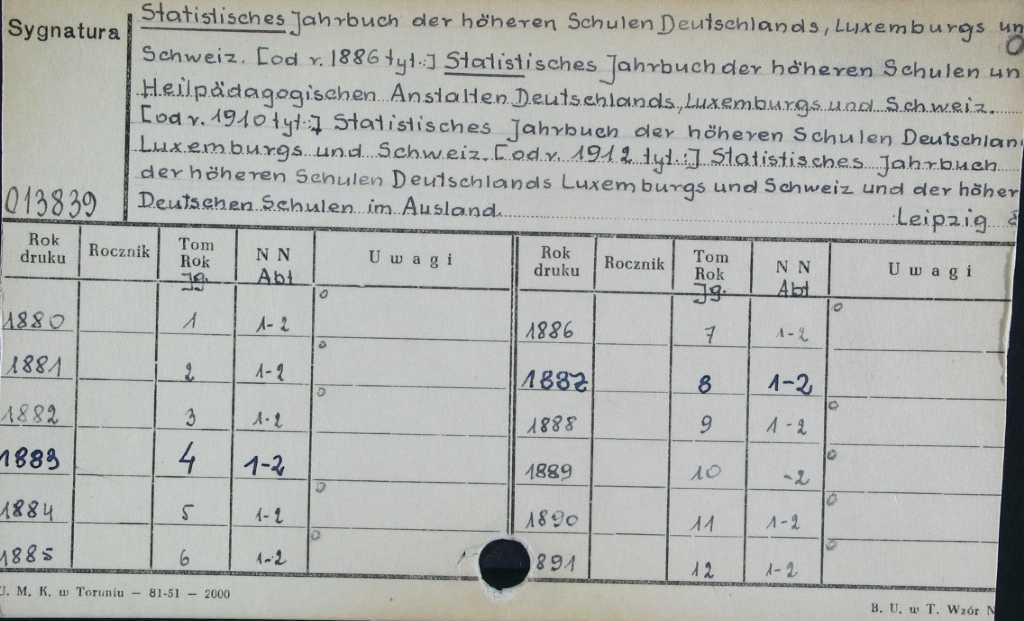 Sygnatura
013839
Statistisches Jahrbuch der höheren Schulen Deutschlands, Luxemburgs un
Schweiz. [od r. 1886 tyt.:] Statistisches Jahrbuch der höheren Schulen un
Heilpädagogischen Anstalten Deutschlands, Luxemburgs und Schweiz.
[od r. 1910 tyt.:] Statistisches Jahrbuch der höheren Schulen Deutschlan
Luxemburgs und Schweiz. [od r. 1912 tyt.:] Statistisches Jahrbuch
der höheren Schulen Deutschlands Luxemburgs und Schweiz und der höher
Deutschen Schulen im Ausland. Leipzig
Rok druku Rocznik Tom Rok Jg. N N Abt Uwagi Rok druku Rocznik Tom Rok Jg. N N Abt Uwagi
1880 1 1-2 o 1886 7 1-2 o
1881 2 1-2 o 1887 8 1-2
1882 3 1-2 o 1888 9 1-2 o
1883 4 1-2 1889 10 -2 o
1884 5 1-2 o 1890 11 1-2 o
1885 6 1-2 o 891 12 1-2 o
U. M. K. w Toruniu — 81-51 — 2000
B. U. w T. Wzór N